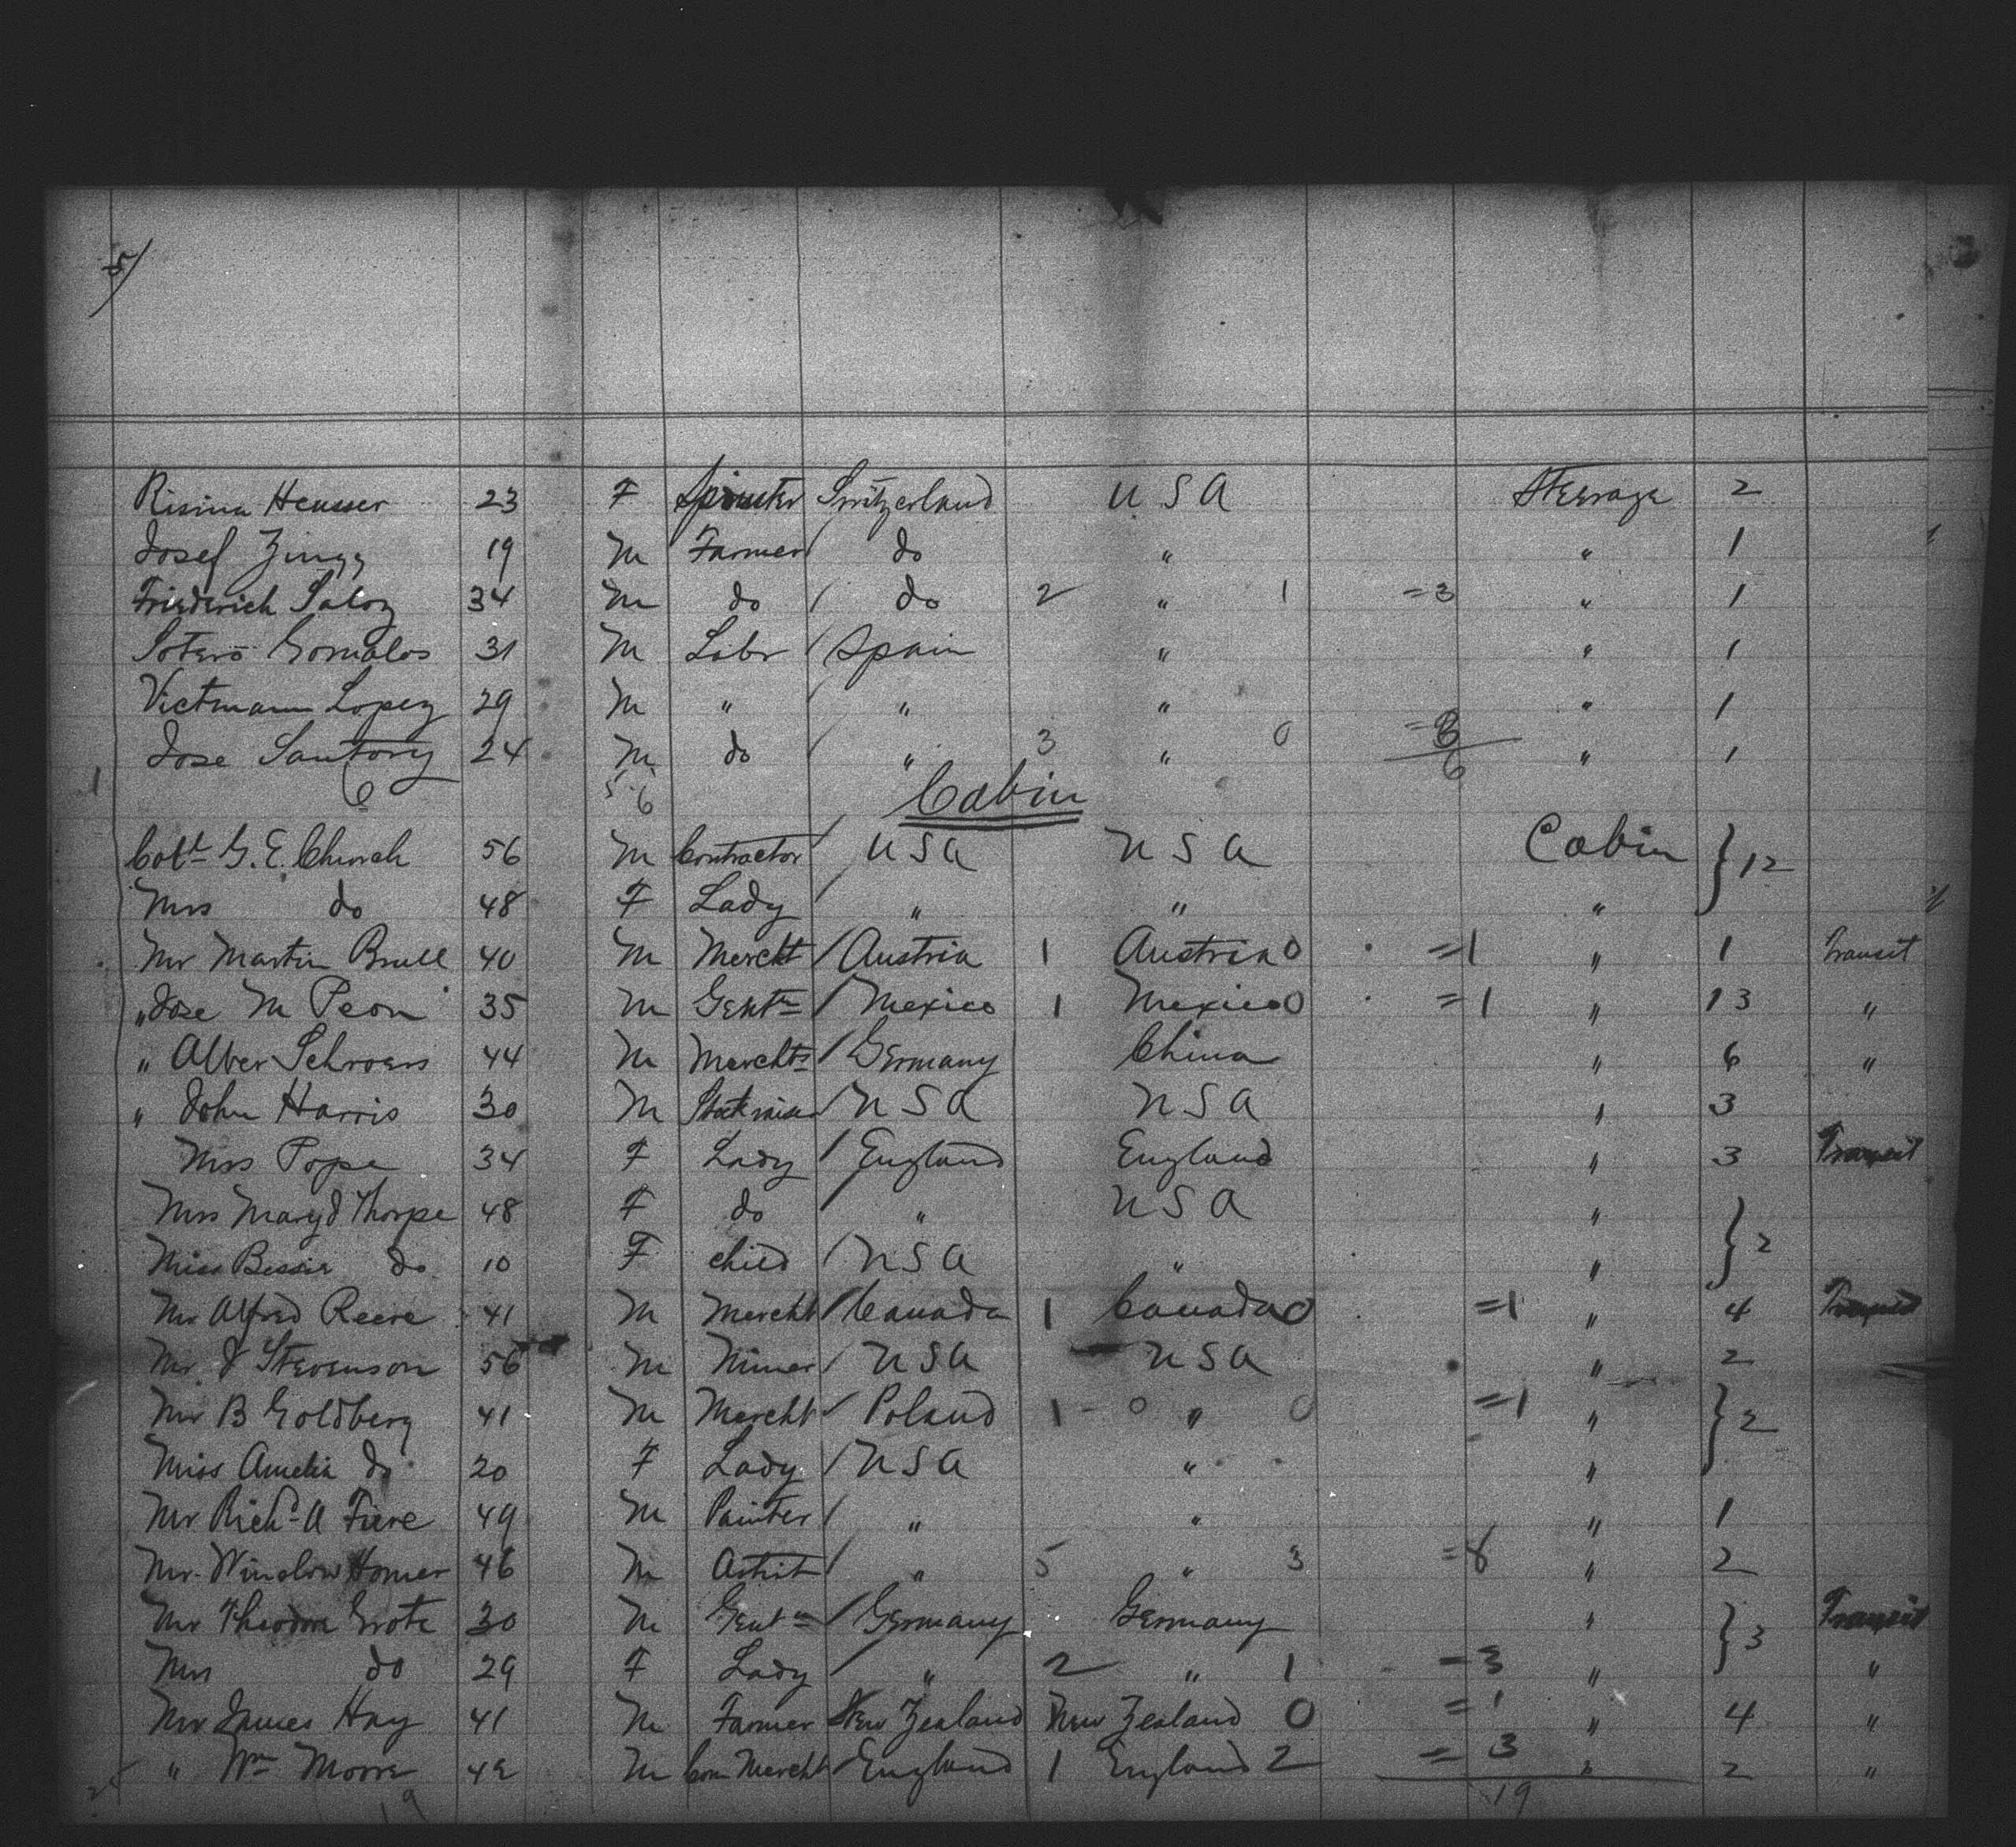 5/
Risina Heusser 23 F Spinster Switzerland U S A Steerage 2
Josef Zingg 19 M Farmer / do " " 1
Friederich Saloz 34 M do / do 2 " 1 =3 " 1
Sotero Gomalos 31 M Labr / Spain " " 1
Victmann Lopez 29 M " / " " " 1
Jose Santory 24 M do / " 3 " 0 =3 " 1
1 6 56 6
Cabin
G. E. Church 56 M Contractor / U S A U S A Cabin } 12
Mrs do 48 F Lady / " " "
Mr Martin Brull 40 M Mercht / Austria 1 Austria 0 =1 " 1 Transit
" Jose M Peon 35 M Gentn / Mexico 1 Mexico 0 =1 " 13 "
" Alber Schroers 44 M Merchts / Germany China " 6 "
" John Harris 30 M Stockraiser / U S A U S A " 3
Mrs Pope 34 F Lady / England England " 3 Transit
Mrs Mary J Thorpe 48 F do / " U S A " } 2
Miss Bessie do 10 F child / U S A " "
Mr Alfred Reeve 41 M Mercht / Canada 1 Canada 0 =1 " 4 Transit
Mr. J Stevenson 56 M Miner / U S A U S A " 2
Mr B Goldberg 41 M Mercht / Poland 1 - 0 " 0 =1 " } 2
Miss Amelia do 20 F Lady / U S A " "
Mr Richd A Fiere 49 M Painter / " " " 1
Mr. Winslow Homer 46 M Artist / " 5 " 3 =8 " 2
Mr Theodore Grote 30 M Gentn / Germany Germany " } 3 Transit
Mrs do 29 F Lady / " 2 " 1 =3 " "
Mr James Hay 41 M Farmer New Zealand New Zealand 0 =1 " 4 "
" Wm Moore 42 M Com Mercht England 1 England 2 =3 " 2 "
25 19 19